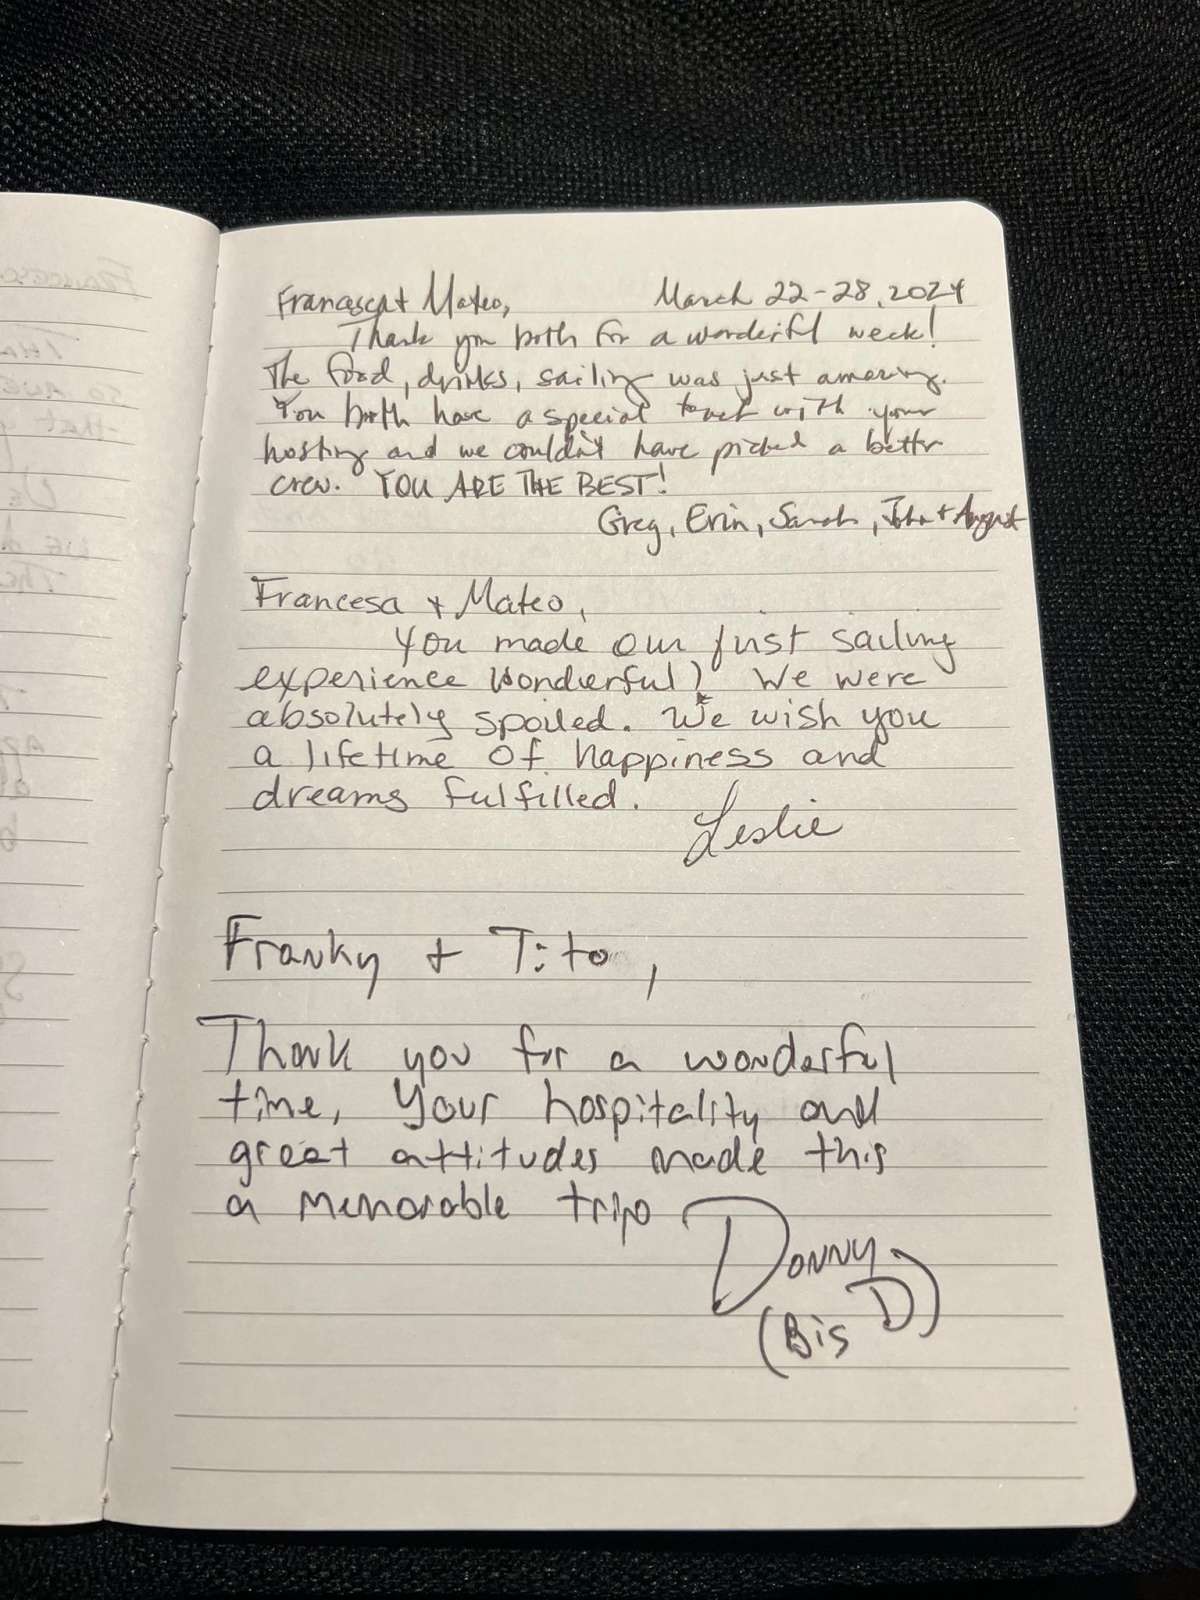 Francesca + Mateo, March 22-28, 2024
Thank you both for a wonderful week!
The food, drinks, sailing was just amazing.
You both have a special touch with your
hosting and we couldn't have picked a better
crew. YOU ARE THE BEST!
Greg, Erin, Sarah, John + August
Francesa + Mateo,
You made our first sailing
experience wonderful! We were
absolutely spoiled. We wish you
a lifetime of happiness and
dreams fulfilled.
Leslie
Franky + Tito,
Thank you for a wonderful
time, Your hospitality and
great attitudes made this
a memorable trip
Donny
(Big D)